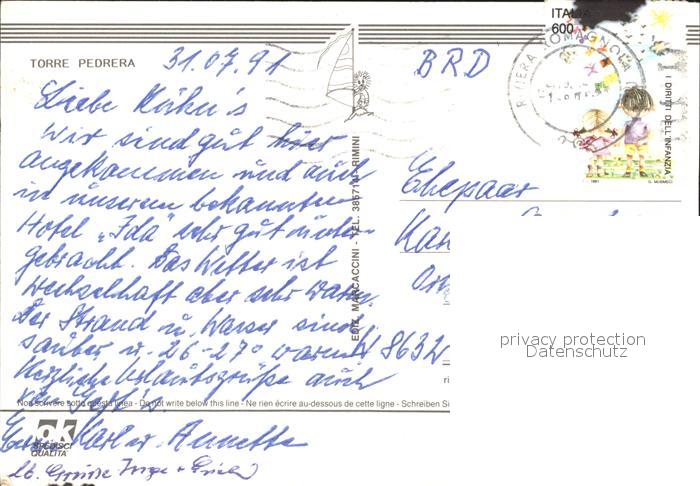 TORRE PEDRERA
31.07.91
Liebe Kühn's
Wir sind gut hier
angekommen und auch
in unserem bekannten
Hotel „Ida" sehr gut unter-
gebracht. Das Wetter ist
wechselhaft aber sehr warm.
Der Strand u. Wasser sind
sauber u. 26-27° warm
Herzliche Urlaubsgrüße auch
Non scrivere sotto questa linea - Do not write below this line - Ne rien écrire au-dessous de cette ligne - Schreiben Si
Eure Karl u. Annette
ok
SPEDISCI
QUALITA'
lb. Grüsse Inge +
EDIZ. MARCACCINI - TEL. 385714 - RIMINI
BRD
ITALIA
600
RIVIERA ROMAGNOLA
I DIRITTI DELL'INFANZIA
1991
G. MUSMECI
Ehepaar
8632
privacy protection
Datenschutz